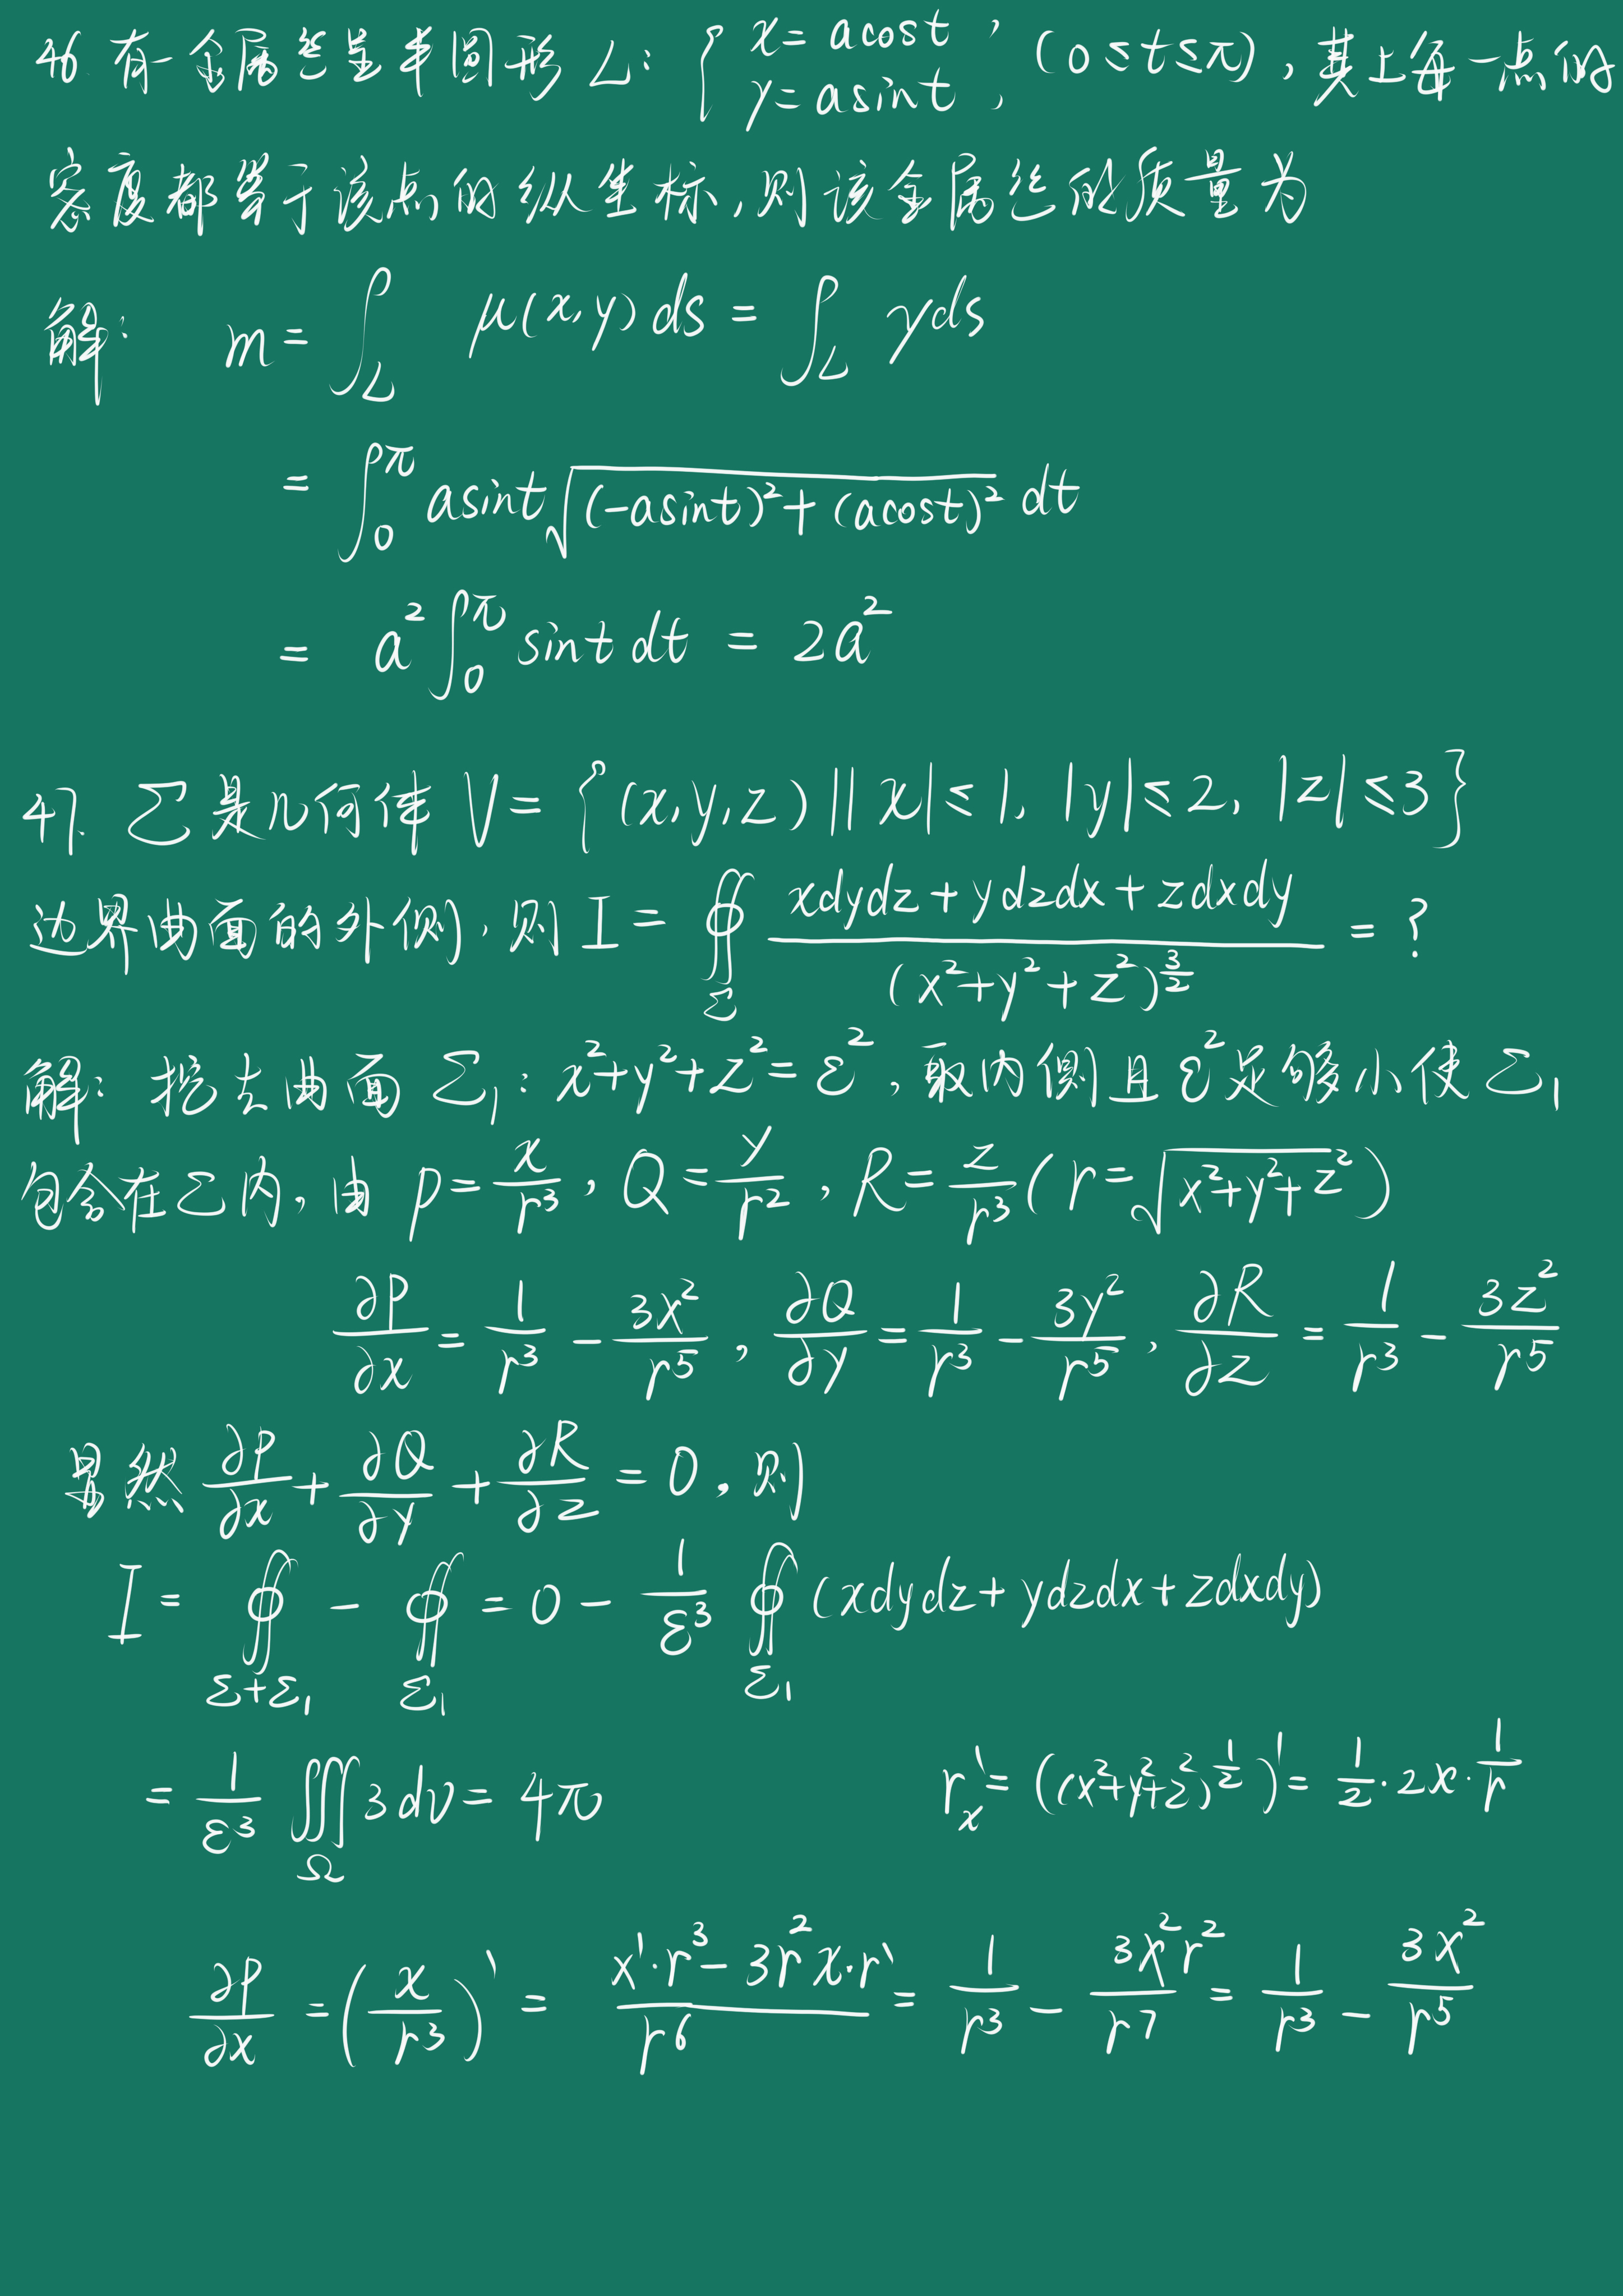 46. 有一金属丝呈半圆形 L: { x=acost , y=asint , (0≤t≤π), 其上每一点的
密度都等于该点的纵坐标, 则该金属丝的质量为
解: m= ∫_L μ(x,y)ds = ∫_L yds
= ∫_0^π asint √((-asint)²+(acost)²) dt
= a² ∫_0^π sint dt = 2a²
47. Σ是几何体 V= {(x,y,z)||x|≤1, |y|≤2, |z|≤3}
边界曲面的外侧, 则 I = ∯_Σ (xdydz+ydzdx+zdxdy)/(x²+y²+z²)^(3/2) = ?
解: 挖去曲面 Σ₁: x²+y²+z²=ε², 取内侧且ε²足够小使Σ₁
包含在Σ内, 由 P=x/r³, Q=y/r², R=z/r³ (r=√(x²+y²+z²))
∂P/∂x = 1/r³ - 3x²/r⁵, ∂Q/∂y = 1/r³ - 3y²/r⁵, ∂R/∂z = 1/r³ - 3z²/r⁵
显然 ∂P/∂x + ∂Q/∂y + ∂R/∂z = 0, 则
I = ∯_(Σ+Σ₁) - ∯_Σ₁ = 0 - 1/ε³ ∯_Σ₁ (xdydz+ydzdx+zdxdy)
= 1/ε³ ∭_Ω 3dv = 4π
r'_x = ((x²+y²+z²)^(1/2))' = 1/2·2x·1/r
∂P/∂x = (x/r³)' = (x'·r³-3r²x·r')/r⁶ = 1/r³ - 3x²r²/r⁷ = 1/r³ - 3x²/r⁵